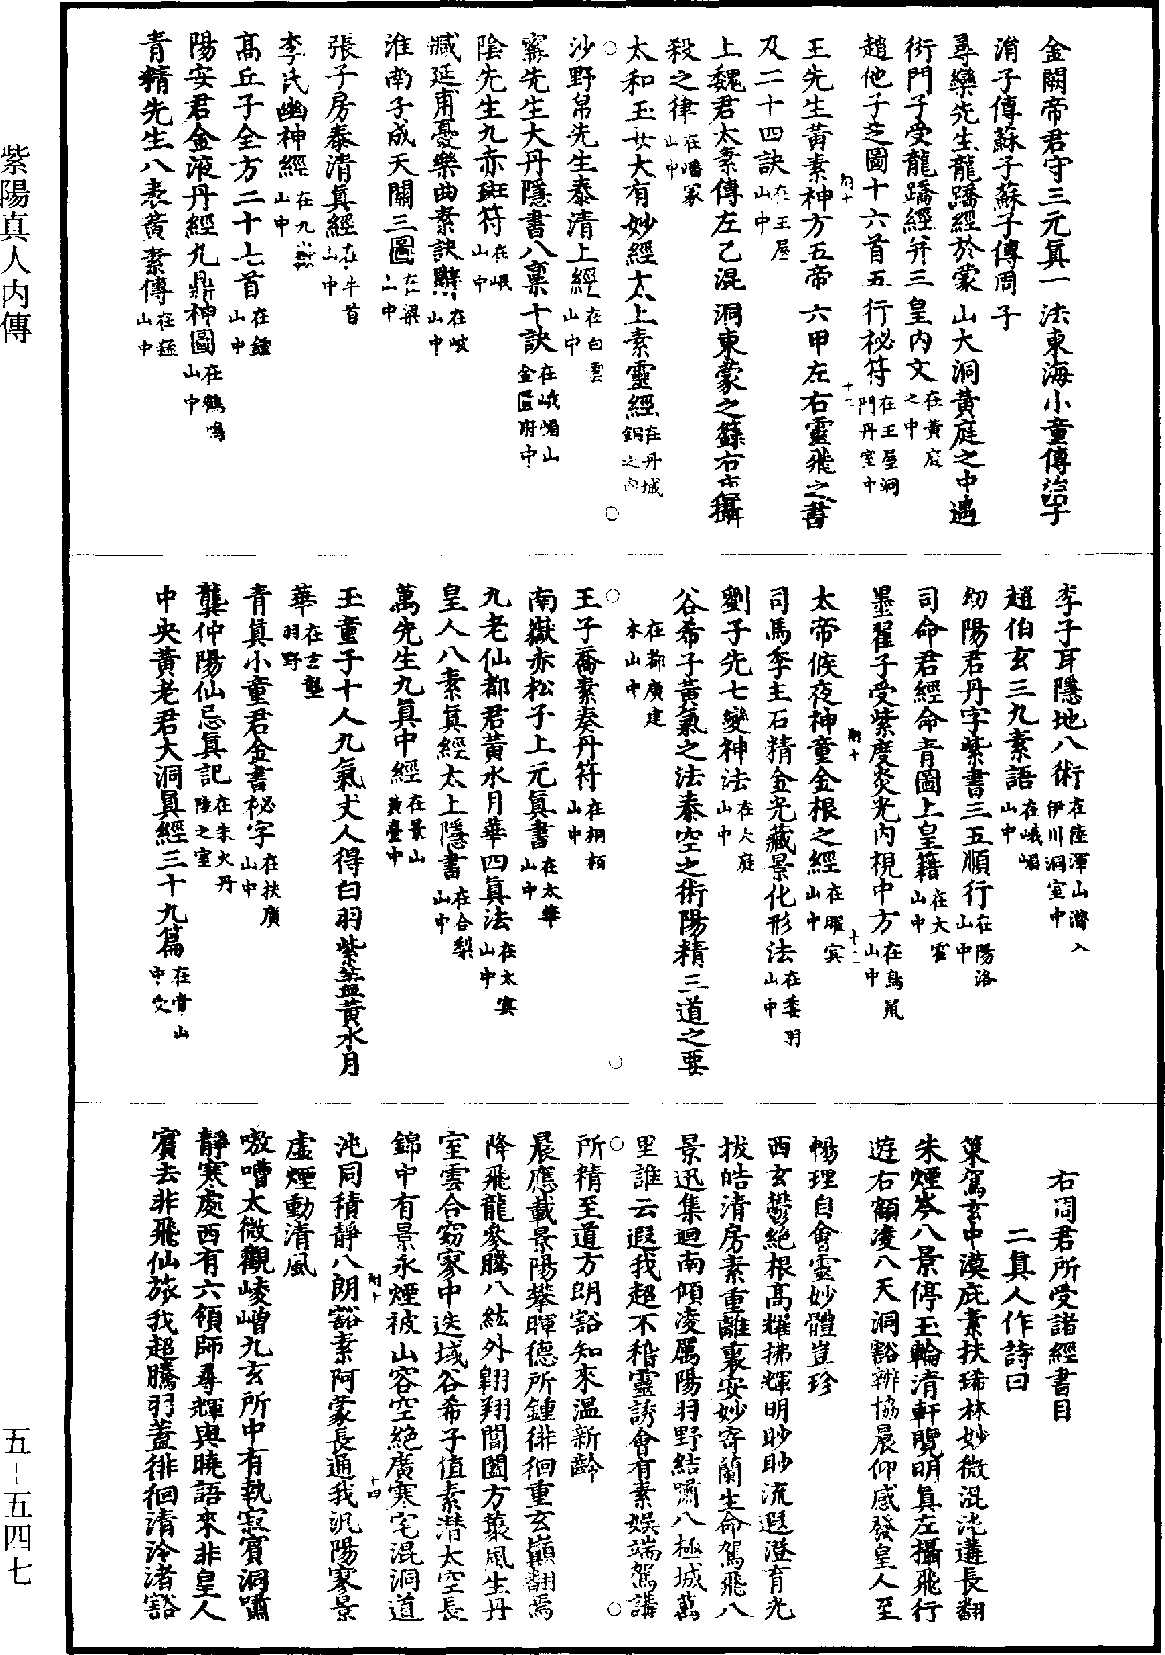 紫陽真人內傳
五-五四七
金闕帝君守三元眞一法東海小童傳涓子
涓子傳蘇子蘇子傳周子
尋欒先生龍蹻經於蒙山大洞黃庭之中遇
衍門子受龍蹻經并三皇內文在黃庭之中
趙他子芝圖十六首五行祕符在王屋洞門丹室中
王先生黃素神方五帝六甲左右靈飛之書
及二十四訣在王屋山中
上魏君太素傳左乙混洞東蒙之籙右庚攝
殺之律在潘冢山中
太和玉女大有妙經太上素靈經在丹城銅之內
沙野帛先生泰清上經在白雲山中
甯先生大丹隱書八稟十訣在峨嵋山金匱府中
陰先生九赤斑符在岷山中
臧延甫憂樂曲素訣辭在岐山中
淮南子成天關三圖在梁山中
張子房泰清眞經在牛首山中
李氏幽神經在九疑山中
高丘子全方二十七首在鍾山中
陽安君金液丹經九鼎神圖在鶴鳴山中
青精先生八表黃素傳在猛山中
李子耳隱地八術在陸渾山潛入伊川洞室中
趙伯玄三九素語在峨嵋山中
幼陽君丹字紫書三五順行在陽洛山中
司命君經命青圖上皇籍在大霍山中
墨翟子受紫度炎光內視中方在鳥鼠山中
太帝候夜神童金根之經在曜宾山中
司馬季主石精金光藏景化形法在委羽山中
劉子先七變神法在大庭山中
谷希子黃氣之法泰空之術陽精三道之要
在都廣建木山中
王子喬素奏丹符在桐栢山中
南嶽赤松子上元眞書在太華山中
九老仙都君黃水月華四眞法在太冥山中
皇人八素眞經太上隱書在合梨山中
萬先生九眞中經在景山黃臺中
玉童子十人九氣丈人得白羽紫蓋黃水月
華在玄壟羽野
青眞小童君金書祕字在扶廣山中
龔仲陽仙忌眞記在朱火丹陵之室
中央黃老君大洞眞經三十九篇在常山中受
右周君所受諸經書目
二眞人作詩曰
策駕玄中漠庇素扶琇林妙微混沌遘長翻
朱煙岑八景停玉輪清軒覽明眞左攝飛行
遊右顧凌八天洞豁辨協晨仰感發皇人至
暢理自會靈妙體豈珍
西玄鬱絶根高耀拂輝明眇眇流遐澄育光
拔皓清房素重離裏安妙寄蘭生命駕飛八
景迅集迴南傾凌厲陽羽野結嘯八極城萬
里誰云遐我超不稽靈誘會有素娛端駕講
所精至道方朗豁知來溫新齡
晨應載景陽攀暉德所鍾徘徊重玄巔翻焉
降飛龍參騰八紘外翱翔閬圖方蓑風生丹
室雲合窈寥中迭域谷希子值素潛太空長
錦中有景永煙被山容空絶廣寒宅混洞道
沌同積靜八朗豁素阿蒙長通我汎陽寥景
虛煙動清風
嗷嘈太微觀崚嶒九玄所中有執寂賓洞嘯
靜寒處西有六領師尋輝與曉語來非皇人
賓去非飛仙旅我超騰羽蓋徘徊清泠渚豁